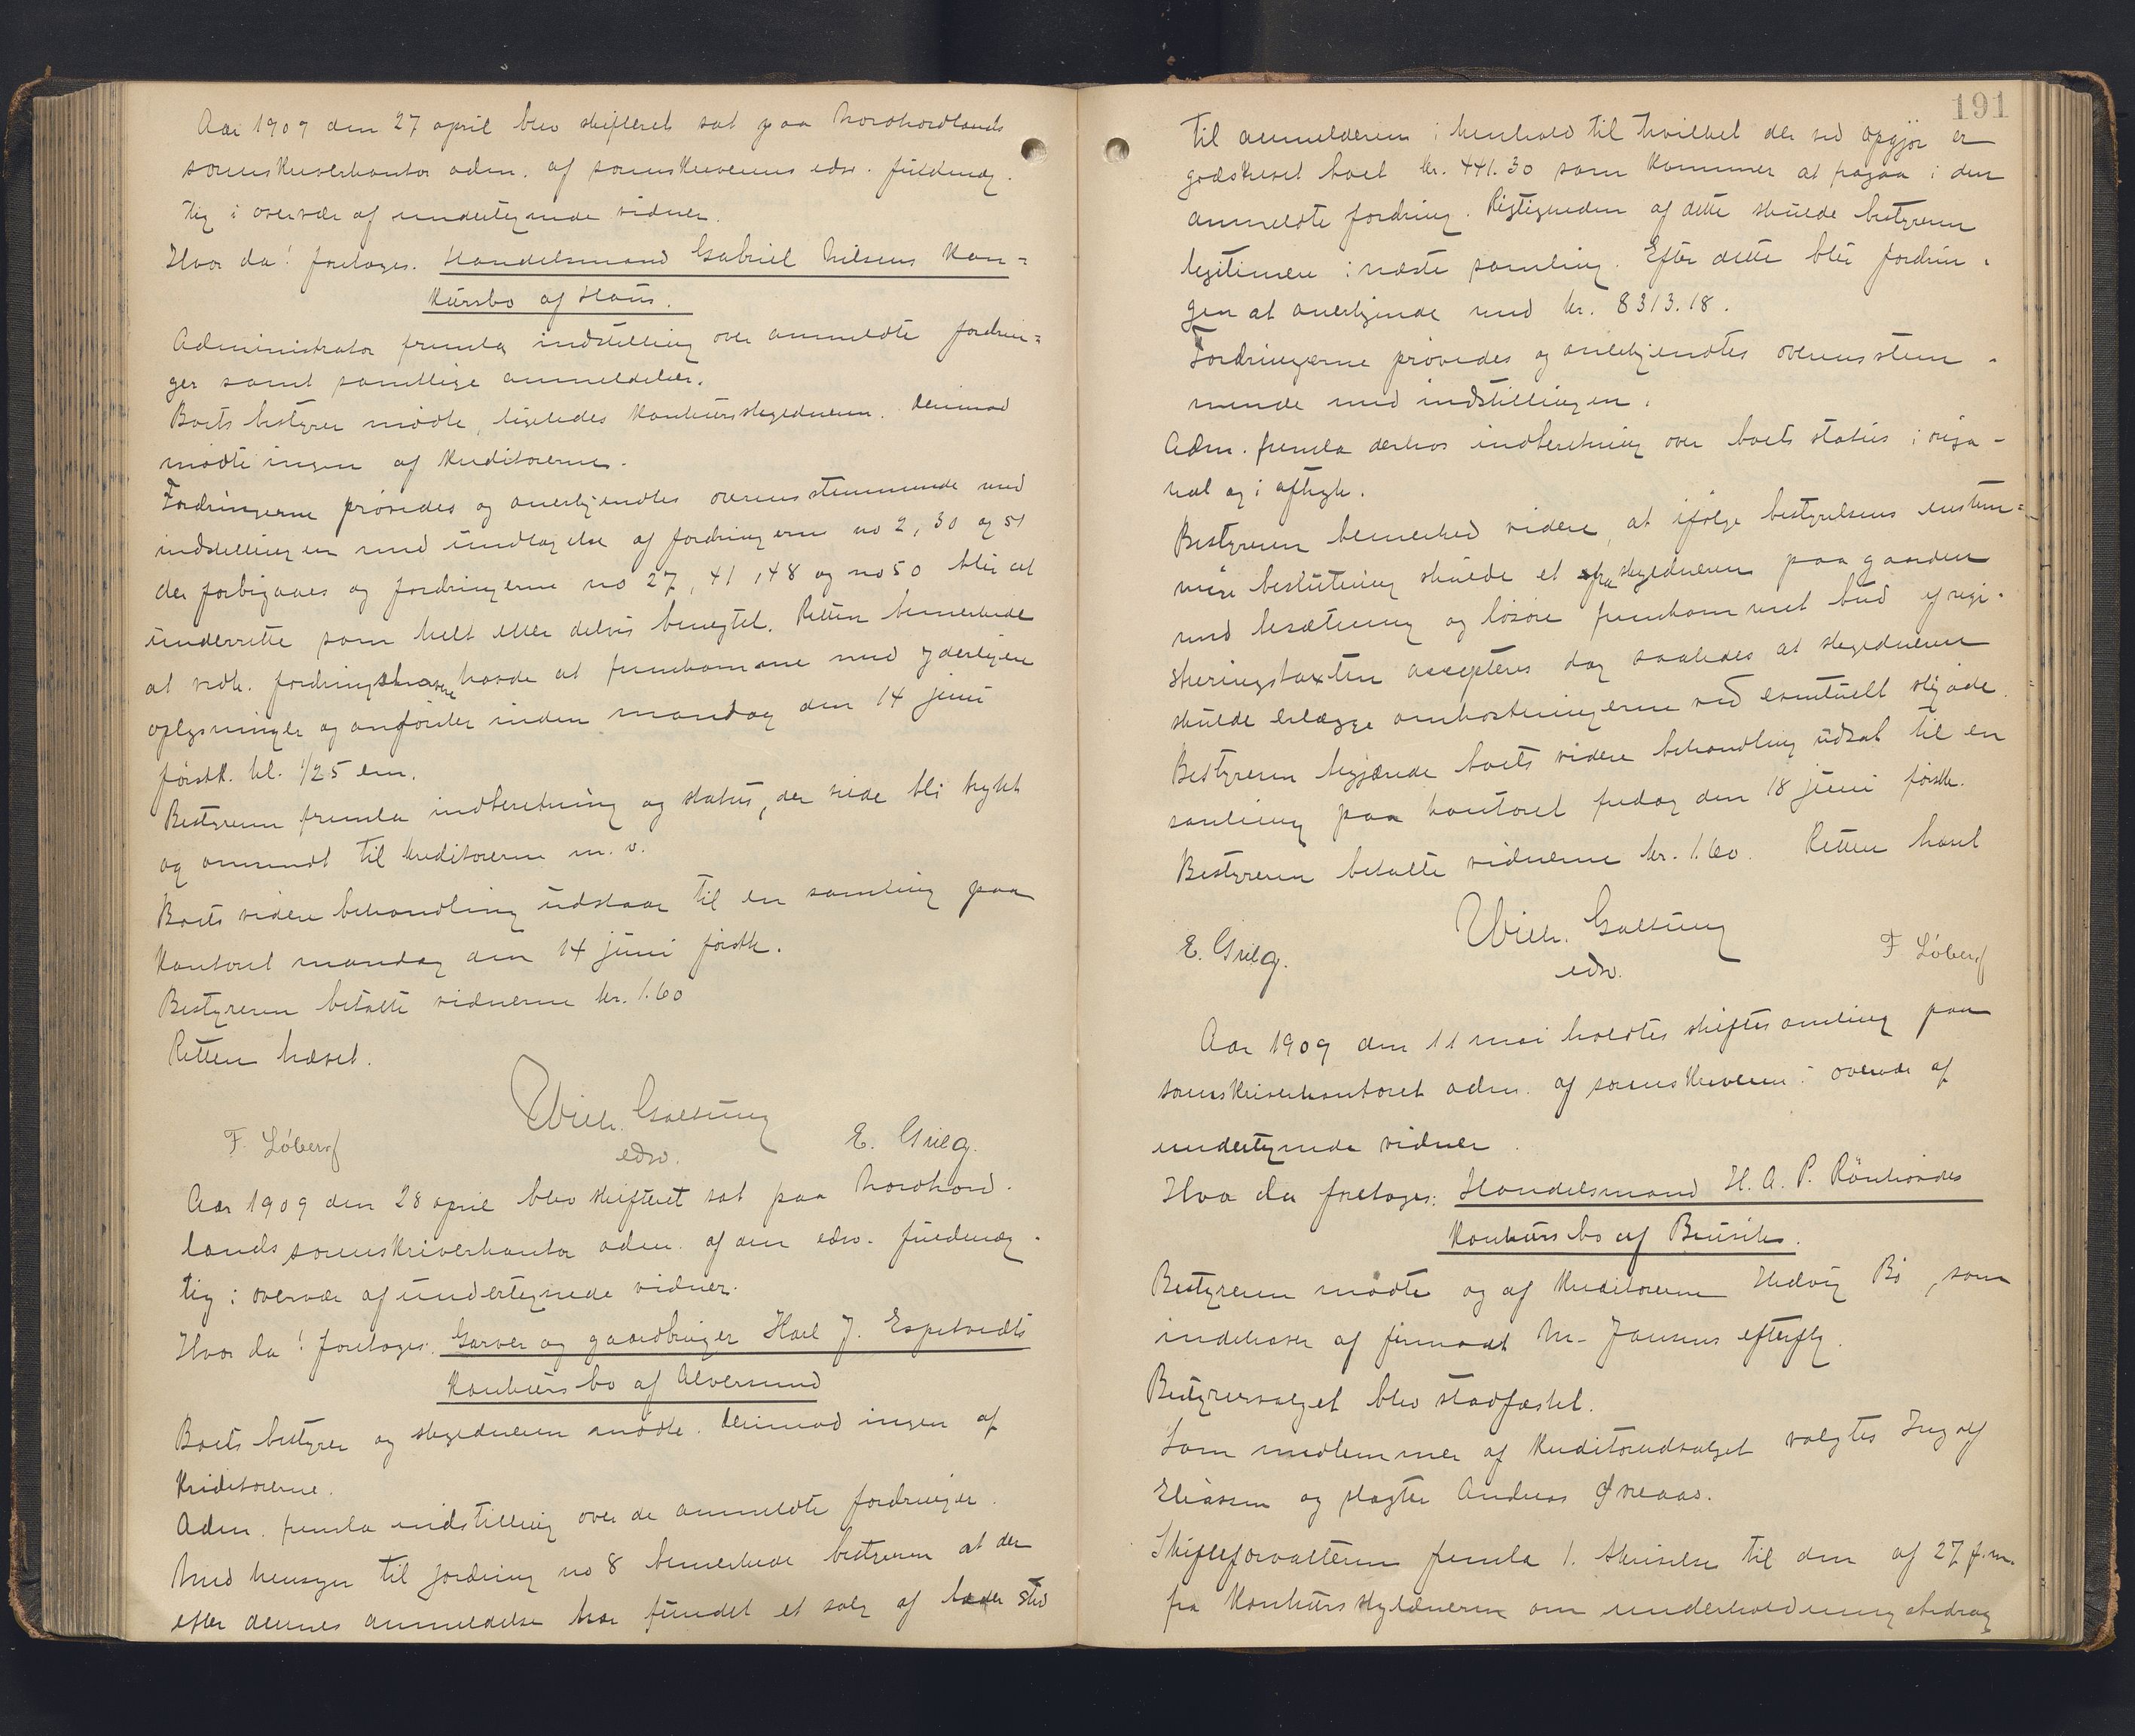 Aar 1909 den 27 april blev skifteret sat paa Nordhordlands
sorenskriverkontor adm. af sorenskriverens edsv. fuldmæg-
tig i overvær af undertegnede vidner.
Hvor da! foretoges. Handelsmand Gabriel Nilsens Kon=
kursbo af Haus.
Administrator fremla indstilling over anmeldte fordrin=
ger samt samtlige anmeldelser.
Boets bestyrer mødte, ligeledes konkursskyldneren. Derimod
mødte ingen af kreditorerne.
Fordringerne prøvedes og anerkjendtes overensstemmende med
indstillingen med undtagelse af fordringerne no 2, 30 og 51
der forbigaaes og fordringerne no 27, 41, 48 og no 50 blir at
underrette som helt eller delvis benegtet. Retten bemerkede
at vedk. fordringshavere havde at fremkomme med yderligere
oplysninger og anførsler inden mandag den 14 juni
førstk. kl. 1/2 5 em.
Bestyreren fremla indberetning og status, der vilde bli trykt
og omsendt til kreditorerne m. v.
Boets videre behandling udstaar til en samling paa
Kontoret mandag den 14 juni førstk.
Bestyreren betalte vidnerne kr. 1.60
Retten hævet.
Wilh. Galtung
F. Løberg edsv. E. Grieg.
Aar 1909 den 28 april blev skifteret sat paa Nordhord-
lands sorenskriverkontor adm. af den edsv. fuldmæg-
tig i overvær af undertegnede vidner.
Hvor da! foretoges: Garver og gaardbruger Karl J. Espetvedts
Konkursbo af Alversund
Boets bestyrer og skyldneren mødte. Derimod ingen af
Kreditorerne.
Adm. fremla indstilling over de anmeldte fordringer.
Med hensyn til fordring no 8 bemerkede bestyreren at der
efter dennes anmeldelse har fundet et salg af læder sted
191
til anmelderen i henhold til hvilket der ved opgjør er
godskrevet boet kr. 441.30 som kommer at fragaa i den
anmeldte fordring. Rigtigheden af dette skulde bestyreren
legitimere i næste samling. Efter dette blir fordrin-
gen at anerkjende med kr. 8313.18.
Fordringerne prøvedes og anerkjendtes overensstem-
mende med indstillingen.
Adm. fremla derhos indberetning over boets status i origi-
nal og i aftryk.
Bestyreren bemerked videre, at ifølge bestyrelsens enstem=
mige beslutning skulde et fra skyldneren paa gaarden
med besætning og løsøre fremkommet bud af regi-
streringstaxten accepteres dog saaledes at skyldneren
skulde erlægge omkostningerne ved eventuelt skjøde.
Bestyreren begjærede boets videre behandling udsat til en
samling paa kontoret fredag den 18 juni førstk.
Bestyreren betalte vidnerne kr. 1.60. Retten hævet
Wilh. Galtung
E. Grieg. edsv. F Løberg
Aar 1909 den 11 mai holdtes skiftesamling paa
sorenskriverkontoret adm. af sorenskriveren i overvær af
undertegnede vidner.
Hvor da foretoges: Handelsmand H. A. P. Rönhovdes
Konkursbo af Bruvik.
Bestyreren mødte og af kreditorerne Hedvig Bö, som
indehaver af firmaet M. Jansens efterflg.
Bestyrervalget blev stadfæstet.
Som medlemmer af kreditorudvalget valgtes Ingolf
Eliassen og slagter Andreas Øreaas.
Skifteforvalteren fremla 1. skrivelse til den af 27 f.m.
fra konkursskyldneren om underholdningsbidrag